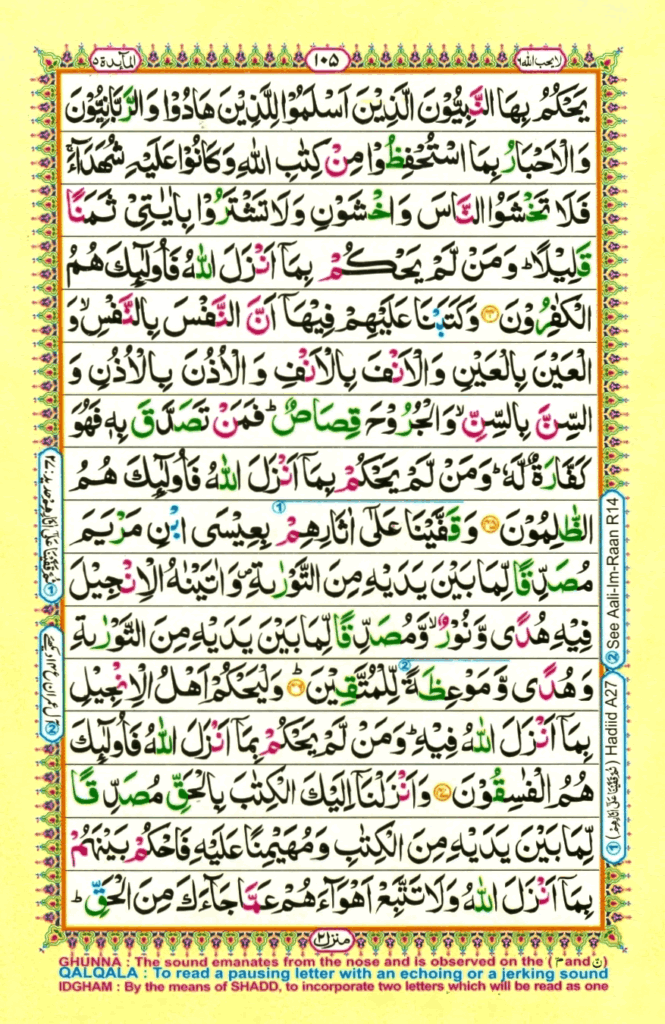 المآىِٕدة ٥
١٠٥
لا یحب اللہ ٦
یَحْكُمُ بِهَا النَّبِیُّوْنَ الَّذِیْنَ اَسْلَمُوْا لِلَّذِیْنَ هَادُوْا وَ الرَّبّٰنِیُّوْنَ
وَ الْاَحْبَارُ بِمَا اسْتُحْفِظُوْا مِنْ كِتٰبِ اللّٰهِ وَ كَانُوْا عَلَیْهِ شُهَدَآءَۚ
فَلَا تَخْشَوُا النَّاسَ وَ اخْشَوْنِ وَ لَا تَشْتَرُوْا بِاٰیٰتِیْ ثَمَنًا
قَلِیْلًاؕ وَ مَنْ لَّمْ یَحْكُمْ بِمَاۤ اَنْزَلَ اللّٰهُ فَاُولٰٓىِٕكَ هُمُ
الْكٰفِرُوْنَ۝۴۴ وَ كَتَبْنَا عَلَیْهِمْ فِیْهَاۤ اَنَّ النَّفْسَ بِالنَّفْسِۙ وَ
الْعَیْنَ بِالْعَیْنِ وَ الْاَنْفَ بِالْاَنْفِ وَ الْاُذُنَ بِالْاُذُنِ وَ
السِّنَّ بِالسِّنِّۙ وَ الْجُرُوْحَ قِصَاصٌؕ فَمَنْ تَصَدَّقَ بِهٖ فَهُوَ
كَفَّارَةٌ لَّهٗؕ وَ مَنْ لَّمْ یَحْكُمْ بِمَاۤ اَنْزَلَ اللّٰهُ فَاُولٰٓىِٕكَ هُمُ
الظّٰلِمُوْنَ۝۴۵ وَ قَفَّیْنَا عَلٰۤی اٰثَارِهِمْ بِعِیْسَی ابْنِ مَرْیَمَ
مُصَدِّقًا لِّمَا بَیْنَ یَدَیْهِ مِنَ التَّوْرٰىةِ۪ وَ اٰتَیْنٰهُ الْاِنْجِیْلَ
فِیْهِ هُدًی وَّ نُوْرٌۙ وَّ مُصَدِّقًا لِّمَا بَیْنَ یَدَیْهِ مِنَ التَّوْرٰىةِ
وَ هُدًی وَّ مَوْعِظَةً لِّلْمُتَّقِیْنَؕ۝۴۶ وَ لْیَحْكُمْ اَهْلُ الْاِنْجِیْلِ
بِمَاۤ اَنْزَلَ اللّٰهُ فِیْهِؕ وَ مَنْ لَّمْ یَحْكُمْ بِمَاۤ اَنْزَلَ اللّٰهُ فَاُولٰٓىِٕكَ
هُمُ الْفٰسِقُوْنَ۝۴۷ وَ اَنْزَلْنَاۤ اِلَیْكَ الْكِتٰبَ بِالْحَقِّ مُصَدِّقًا
لِّمَا بَیْنَ یَدَیْهِ مِنَ الْكِتٰبِ وَ مُهَیْمِنًا عَلَیْهِ فَاحْكُمْ بَیْنَهُمْ
بِمَاۤ اَنْزَلَ اللّٰهُ وَ لَا تَتَّبِعْ اَهْوَآءَهُمْ عَمَّا جَآءَكَ مِنَ الْحَقِّؕ
منزل ٢
② See Aali-Im-Raan R14
① (ثُمَّ قَفَّیْنَا عَلٰۤی اٰثَارِهِمْ) Hadiid A27
GHUNNA : The sound emanates from the nose and is observed on the (م and ن)
QALQALA : To read a pausing letter with an echoing or a jerking sound
IDGHAM : By the means of SHADD, to incorporate two letters which will be read as one